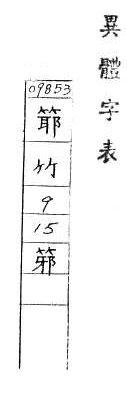 異體字表
09853
竹
9
15